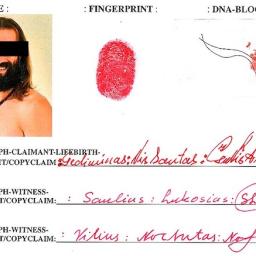 E : FINGERPRINT : : DNA-BLOO
PH-CLAIMANT-LIFEBIRTH-
T/COPYCLAIM: Gediminas: Nis Santas:
PH-WITNESS-
T/COPYCLAIM: : Saulius: Lukosius:
PH-WITNESS-
T/COPYCLAIM: : Vilius: Norbutas: